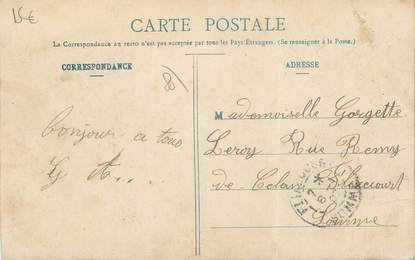 15€
CARTE POSTALE
La Correspondance au recto n'est pas acceptée par tous les Pays Étrangers. (Se renseigner à la Poste.)
CORRESPONDANCE
ADRESSE
80
Bonjour a tous
G
Mademoiselle Georgette
Leroy Rue Remy
de
Somme